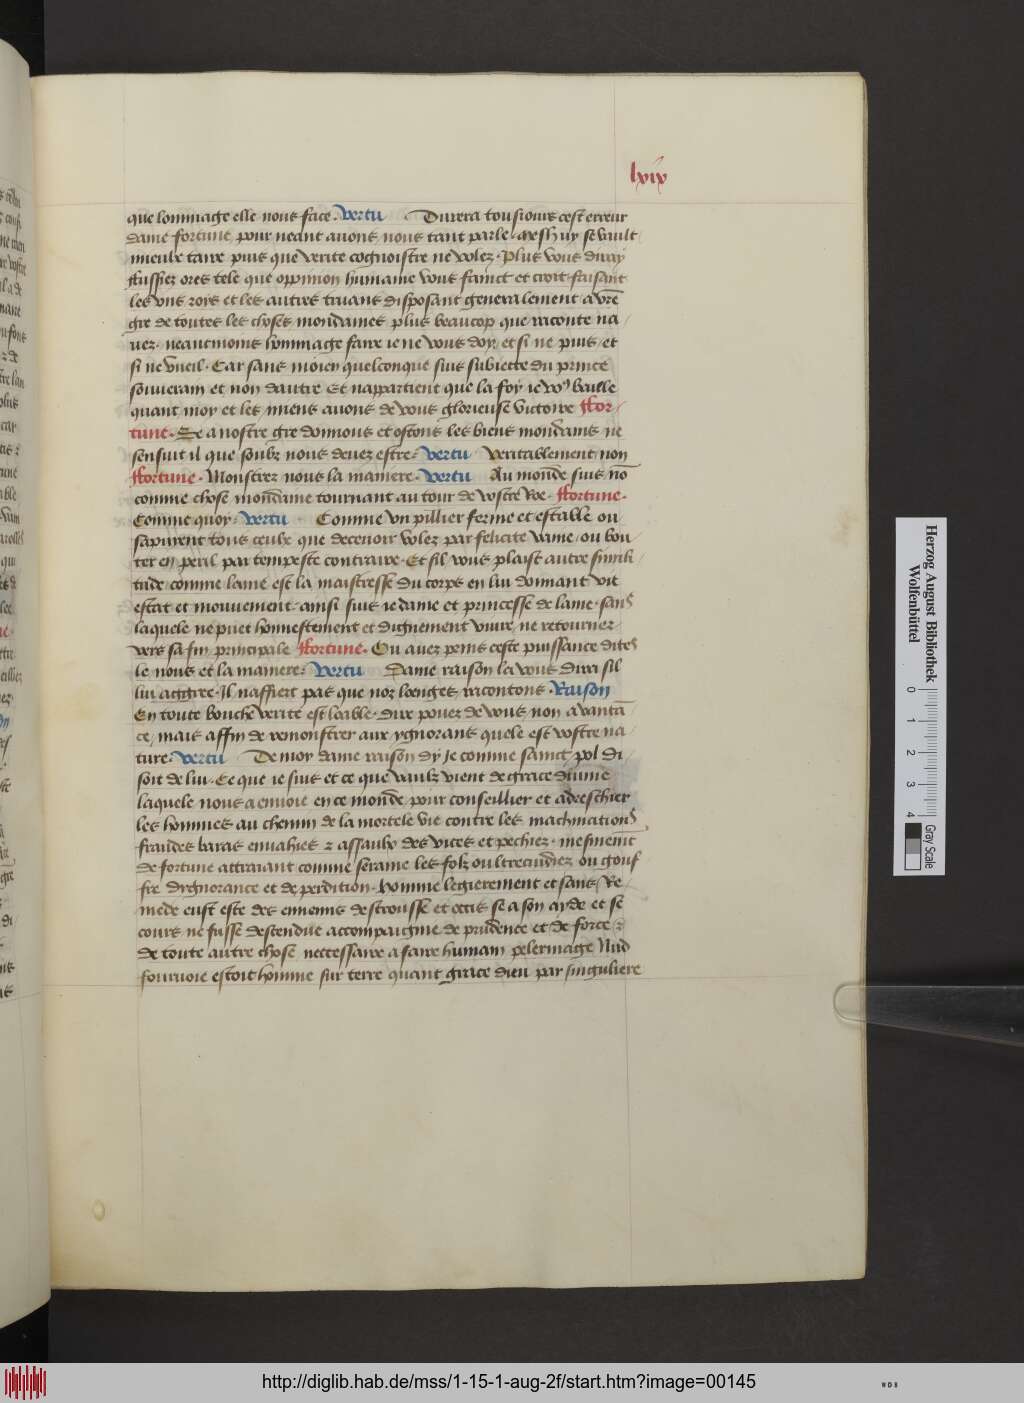 lxix
que lommage elle nous face. Vertu Durera tousiours cest erreur
dame fortune pour neant auons nous tant parle. meshuy se vault
mieulx taire puis que verite cognoistre ne volez. Plus vous diray
ffussiez ores tele que oppinion humaine vous faint et croit. faisant
les vns roys et les autres truans disposant generalement a vr̄e
gre de toutes les choses mondaines plus beaucop que raconte na/
uez. neantmoins hommage faire ie ne vous doy. et si ne puis. et
si ne vueil. Car sans moien quelconque suis subiecte du prince
souuerain et non dautre Et nappartient que la foy ie vo9 baille
quant moy et les miens auons de vous glorieuse victoire ffor/
tune. Se a nostre gre donnons et ostons les biens mondains ne
sensuit il que soubz nous deuez estre. Vertu Veritablement non
ffortune. Monstrez nous la maniere. Vertu Au monde suis nō
comme chose mondaine tournant au tour de vostre Roe. ffortune.
Comme quoy. Vertu Comme vn pillier ferme et estable ou
sapuient tous ceulx que deceuoir volez par felicite vaine. ou bou
ter en peril par tempeste contraire. Et sil vous plaist autre simili/
tude. comme lame est la maistresse du corps en lui donnant vie
estat et mouuement. ainsi suis ie dame et princesse de lame. sans
laquele ne puet honnestement et dignement viure. ne retourner
vers sa fin principale ffortune. Ou auez prins ceste puissance dites
le nous et la maniere. Vertu Dame raison la vous dira sil
lui aggree. Il naffiert pas que noz loenges racontons. Raison
En toute bouche verite est loable. dire pouez de vous non a vantā
ce, mais affin de remonstrer aux ygnorans quele est vostre na
ture. Vertu De moy dame raison dy ie comme saint pol di
soit de lui. Ce que ie suis et ce que vaulx vient de grace diuine
laquele nous a enuoie en ce monde pour conseillier et adreschier
les hommes au chemin de la mortele vie contre les machinations
fraudes baras enuahies z assaulx des vices et pechiez. mesment
de fortune attraiant comme seraine les folz oultrecuidiez ou gouf
fre dygnorance et de perdition. Homme legierement et sans Re
mede eust este des ennemis destrousse et occis se a son ayde et se
cours ne fusse descendue accompaignie de prudence et de force z
de toute autre chose neccessaire a faire humain pelerinage Nud
fouruoie estoit homme sur terre quant grace dieu par singuliere
Herzog August Bibliothek
Wolfenbüttel
0 1 2 3 4
Gray Scale
http://diglib.hab.de/mss/1-15-1-aug-2f/start.htm?image=00145